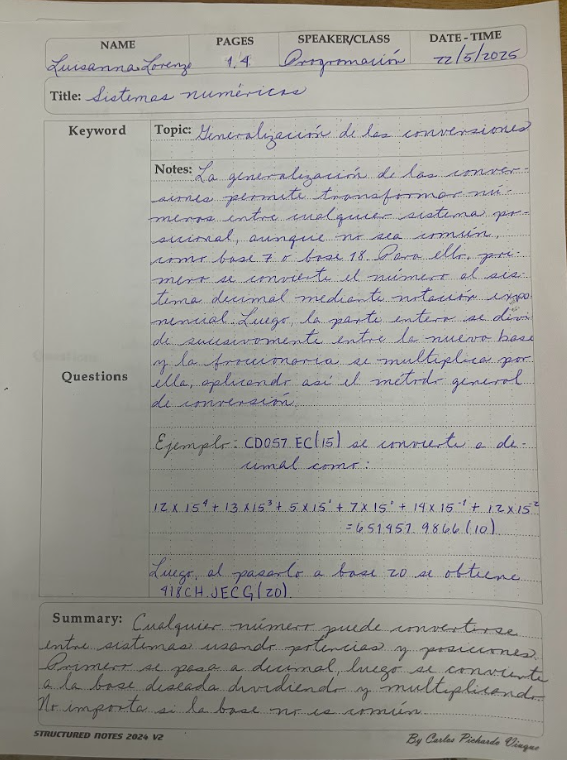 NAME PAGES SPEAKER/CLASS DATE - TIME
Luisanna Lorenzo 1.4 Programación 22/5/2025
Title: Sistemas numéricos
Keyword
Topic: Generalización de las conversiones
Notes: La generalización de las conver-
siones permite transformar nú-
meros entre cualquier sistema po-
sicional, aunque no sea común,
como base 7 o base 18. Para ello, pri-
mero se convierte el número al sis-
tema decimal mediante notación expo
nencial. Luego, la parte entera se divi
de sucesivamente entre la nueva base
y la fraccionaria se multiplica por
Questions
ella, aplicando así el método general
de conversión.
Ejemplo: CD057.EC(15) se convierte a de-
cimal como:
12 x 15⁴ + 13 x 15³ + 5 x 15¹ + 7 x 15¹ + 14 x 15⁻¹ + 12 x 15⁻²
= 651,957.9866(10)
Luego, al pasarlo a base 20 se obtiene
418CH.JECG(20).
Summary: Cualquier número puede convertirse
entre sistemas usando potencias y posiciones.
Primero se pasa a decimal, luego se convierte
a la base deseada dividiendo y multiplicando.
No importa si la base no es común.
STRUCTURED NOTES 2024 V2
By Carlos Pichardo Viuque